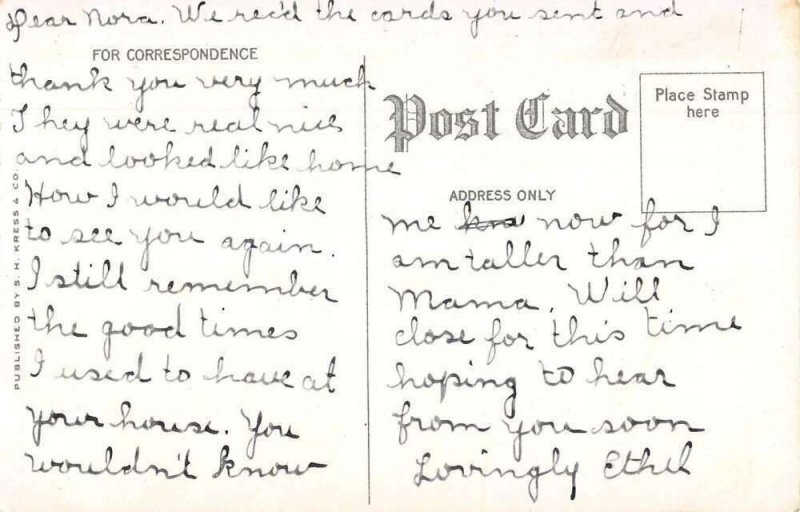 Dear Nora. We rec'd the cards you sent and
FOR CORRESPONDENCE
thank you very much
They were real nice
and looked like home
How I would like
to see you again.
I still remember
the good times
I used to have at
your house. You
wouldn't know
PUBLISHED BY S. H. KRESS & CO.
Post Card
Place Stamp
here
ADDRESS ONLY
me now for I
am taller than
Mama. Will
close for this time
hoping to hear
from you soon
Lovingly Ethel